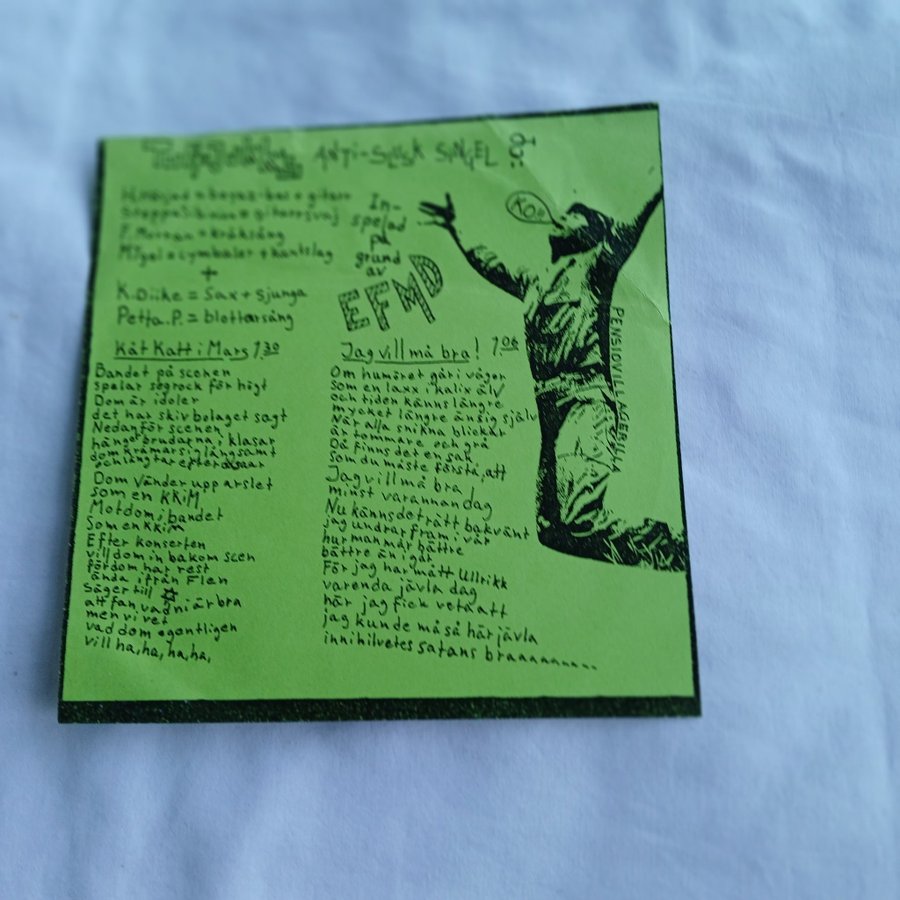 ANTI-SUSK SINGEL
= gitarrsvaj
= kråksång
Mögel = cymbaler + kantslag
+
K.Oiike = Sax + sjunga
Petta.P. = blottarsång
In-
spelad
på
grund
av
EFMD
KO..
PENSIONVILL AGERILLA
Kåt Katt i Mars 1.30
Bandet på scenen
spelar sögrock för högt
Dom är idoler
det har skivbolaget sagt
Nedanför scenen
hänger brudarna i klasar
dom kråmar sin långsamt
och längtar efter
Dom vänder upp arslet
som en KKiM
Mot dom i bandet
Som en KKiM
Efter konserten
vill dom in bakom scen
för dom har rest
ända ifrån Flen
Säger till
att fan vad ni är bra
men vi vet
vad dom egentligen
vill ha, ha, ha, ha,
Jag vill må bra! 1.06
Om humöret går i vågor
som en laxx i kalix älv
och tiden känns längre
mycket längre än sig själv
När alla snikna blickar
är tommare och grå
Då finns det en sak
som du måste förstå, att
Jag vill må bra
minst varannan dag
Nu känns det rått bakvänt
jag undrar fram i vår
hur man mår bättre
bättre än i går
För jag har mått Ullrikk
varenda jävla dag
här jag fick veta att
jag kunde må så här jävla
inni hilvetes satans braaaaaaaa....